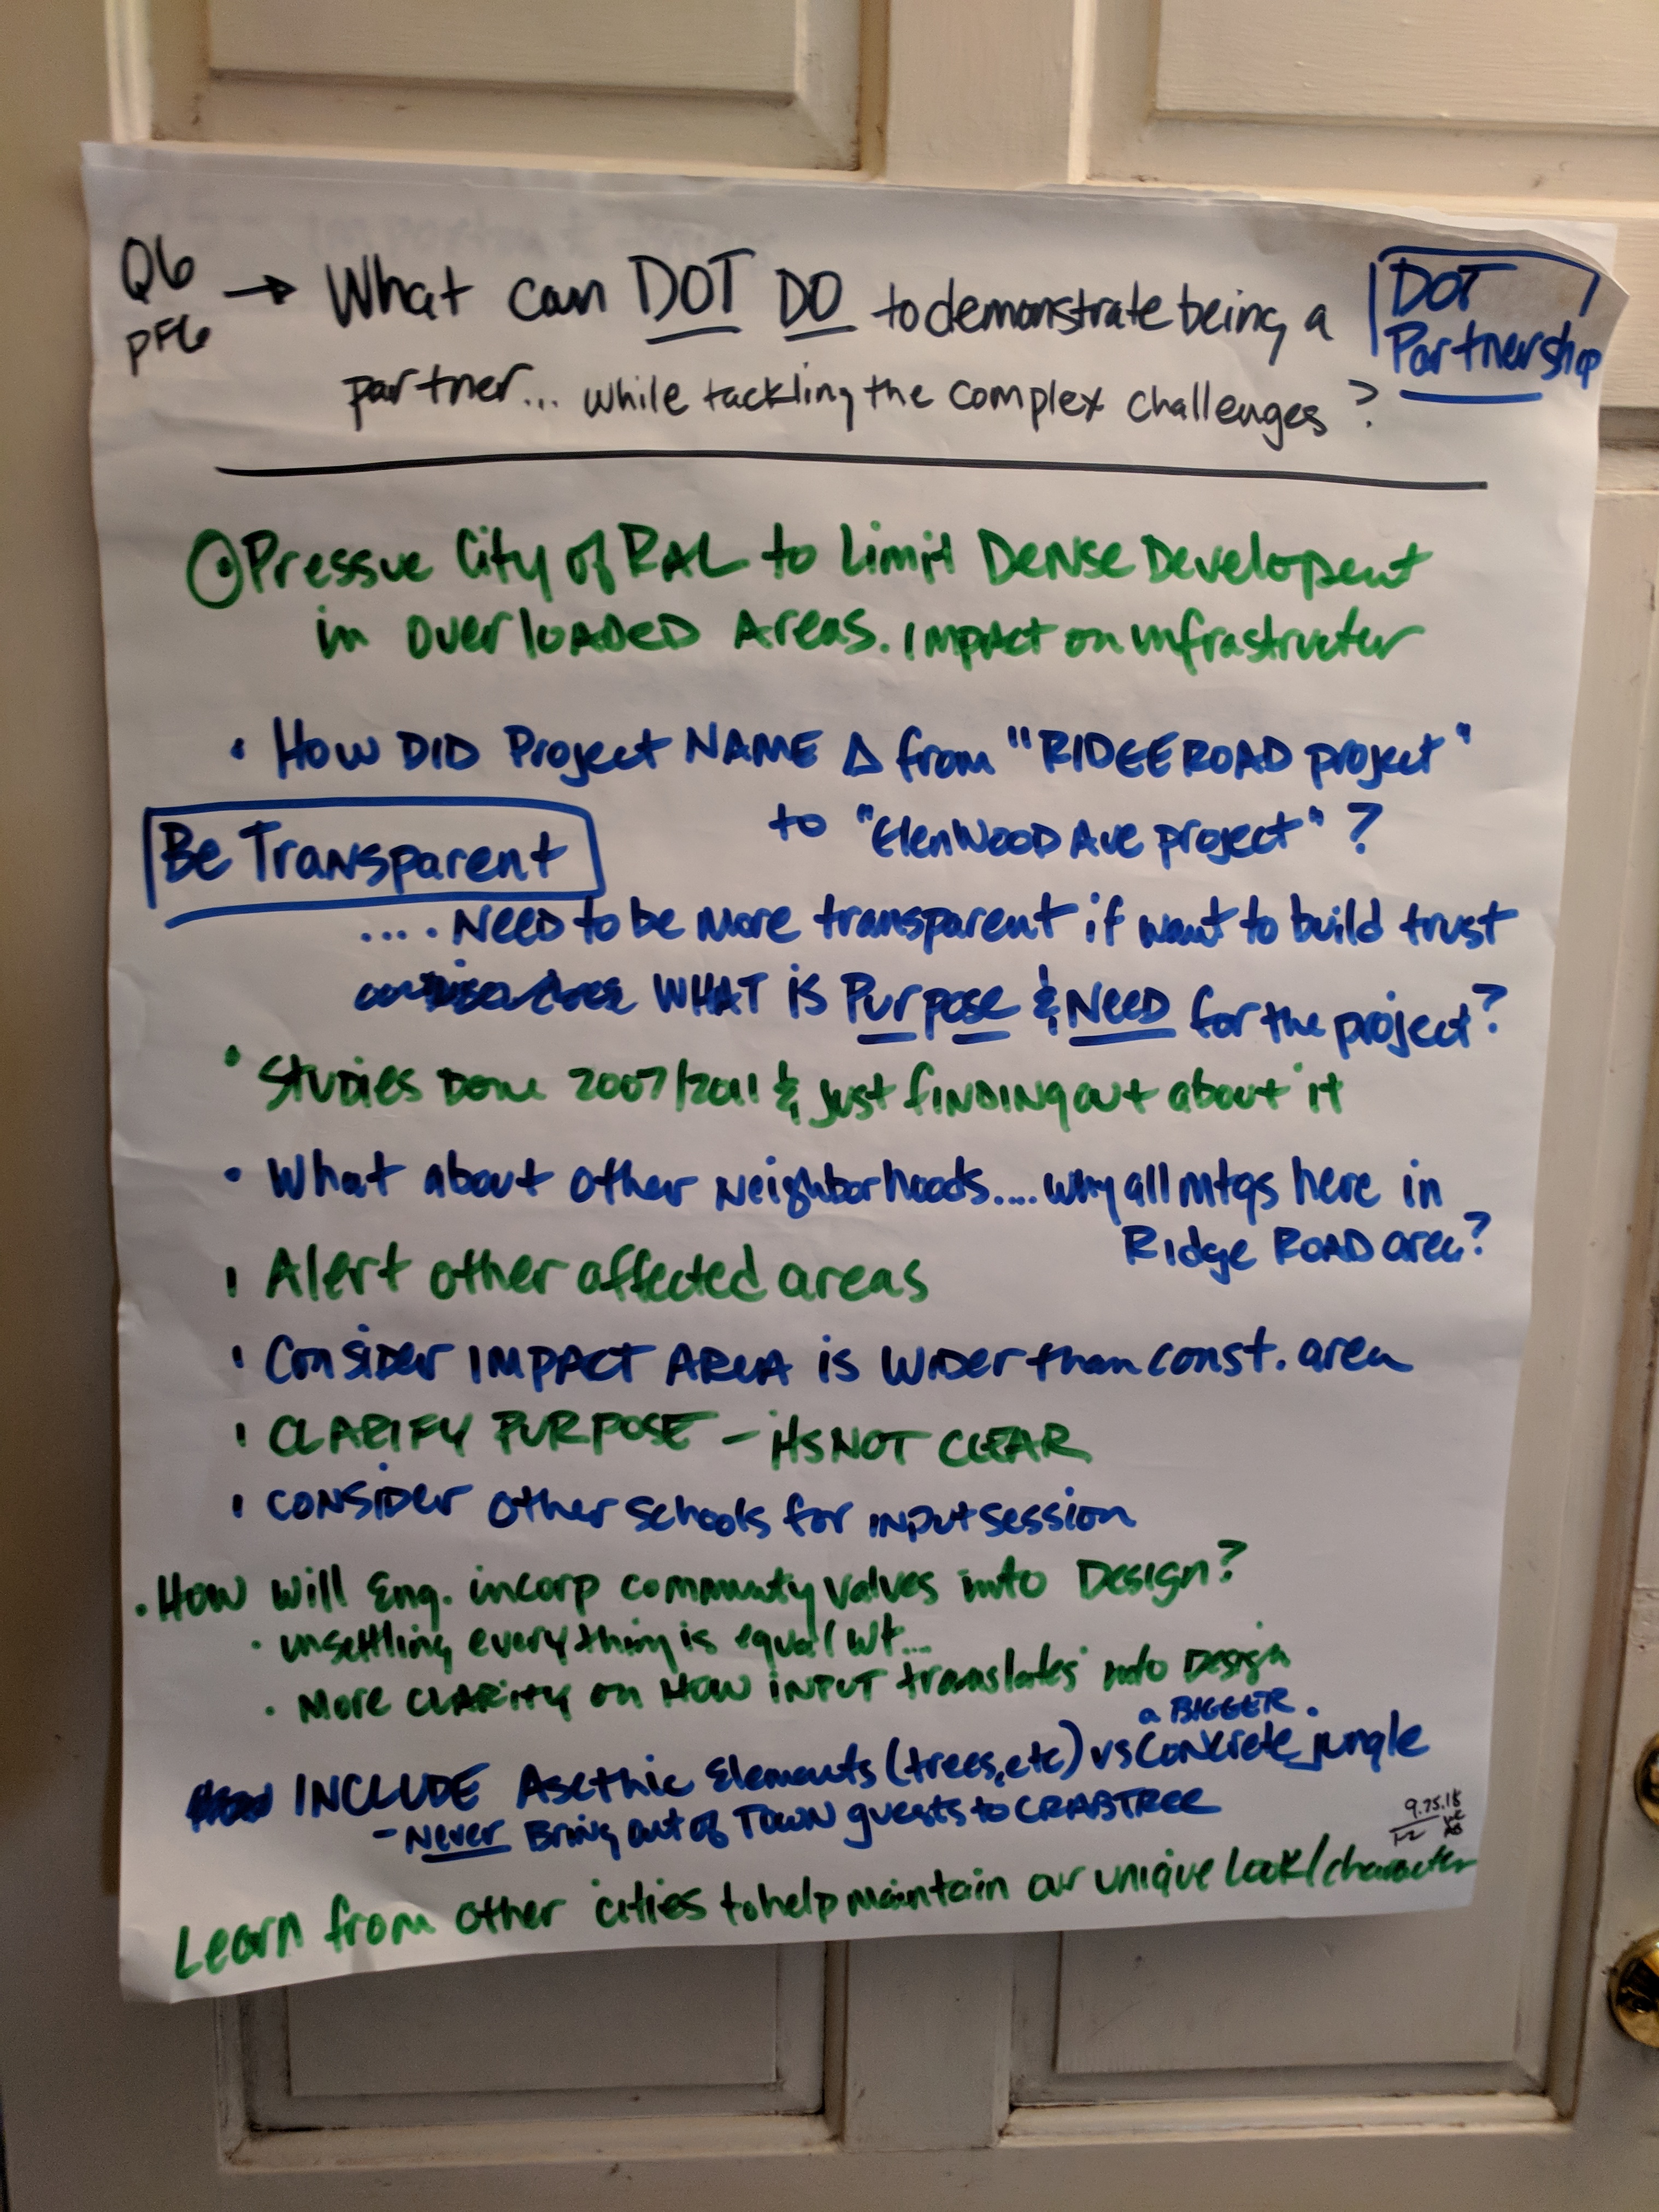 Q6
PF6
→ What can DOT DO to demonstrate being a
DOT
Partnership
partner... while tackling the complex challenges?
Pressue City of RAL to Limit Dense Developent
in overloaded Areas. Impact on infrastructer
• How DID Project NAME Δ from "RIDGE ROAD project"
to "GlenWood Ave project"?
Be Transparent
.... NEED to be more transparent if want to build trust
WHAT is Purpose & NEED for the project?
• Studies Done 2007/2011 & just finding out about it
• What about other Neighborhoods.... why all mtgs here in
Ridge ROAD area?
Alert other affected areas
Consider IMPACT AREA is Wider than const. area
CLARIFY PURPOSE - its NOT CLEAR
CONSIDER other schools for input session
• How will Eng. incorp community values into Design?
• unsettling everything is equal wt...
• More CLARITY on HOW INPUT translates into Design
a BIGGER
INCLUDE Asethic Elements (trees, etc) vs Concrete jungle
- Never Bring out of Town guests to CRABTREE
9.25.18
Learn from other cities to help maintain our unique look/character